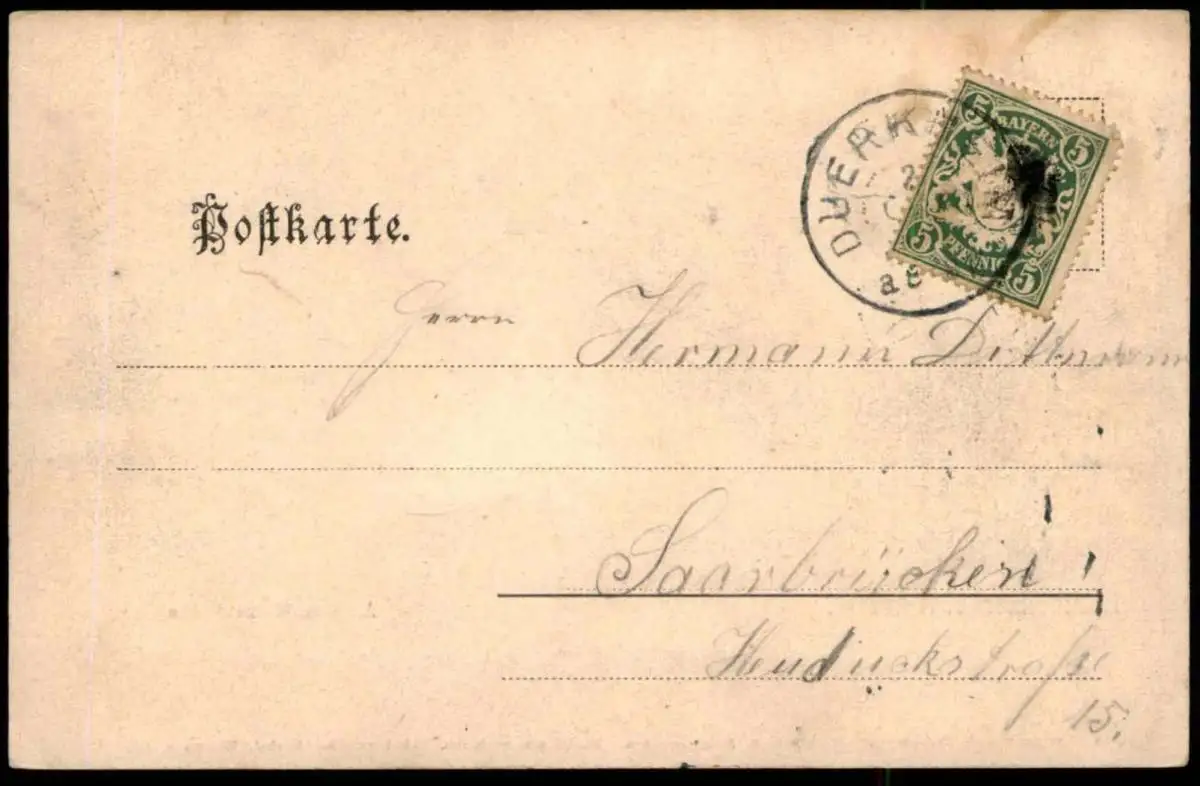 Postkarte.
DUERKHEIM
a8
5 BAYERN 5
5 PFENNIG 5
Herrn Hermann Dittmann
Saarbrücken!
Heuduckstraße
15.